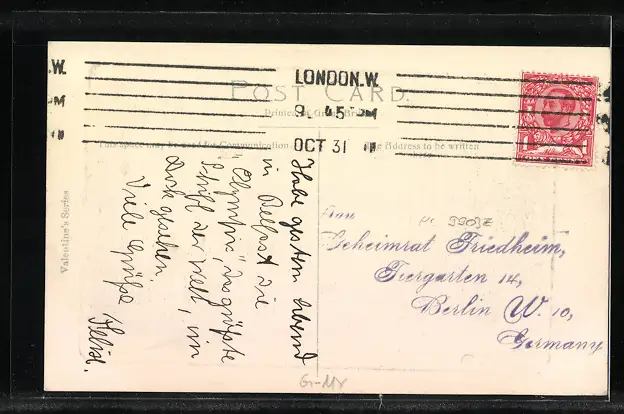 LONDON.W.
9. 45 PM
OCT 31 11
.W.
PM
11
POST CARD.
Printed in Great Britain
This space may be used for Communication
The Address to be written
here.
Valentine's Series
Habe gestern Abend
in Belfast die
"Olympic", das größte
Schiff der Welt, im
Dock gesehen
Viele Grüße
Felix.
Frau
Geheimrat Friedheim,
Tiergarten 14,
Berlin W. 10,
Germany
Gi-MY